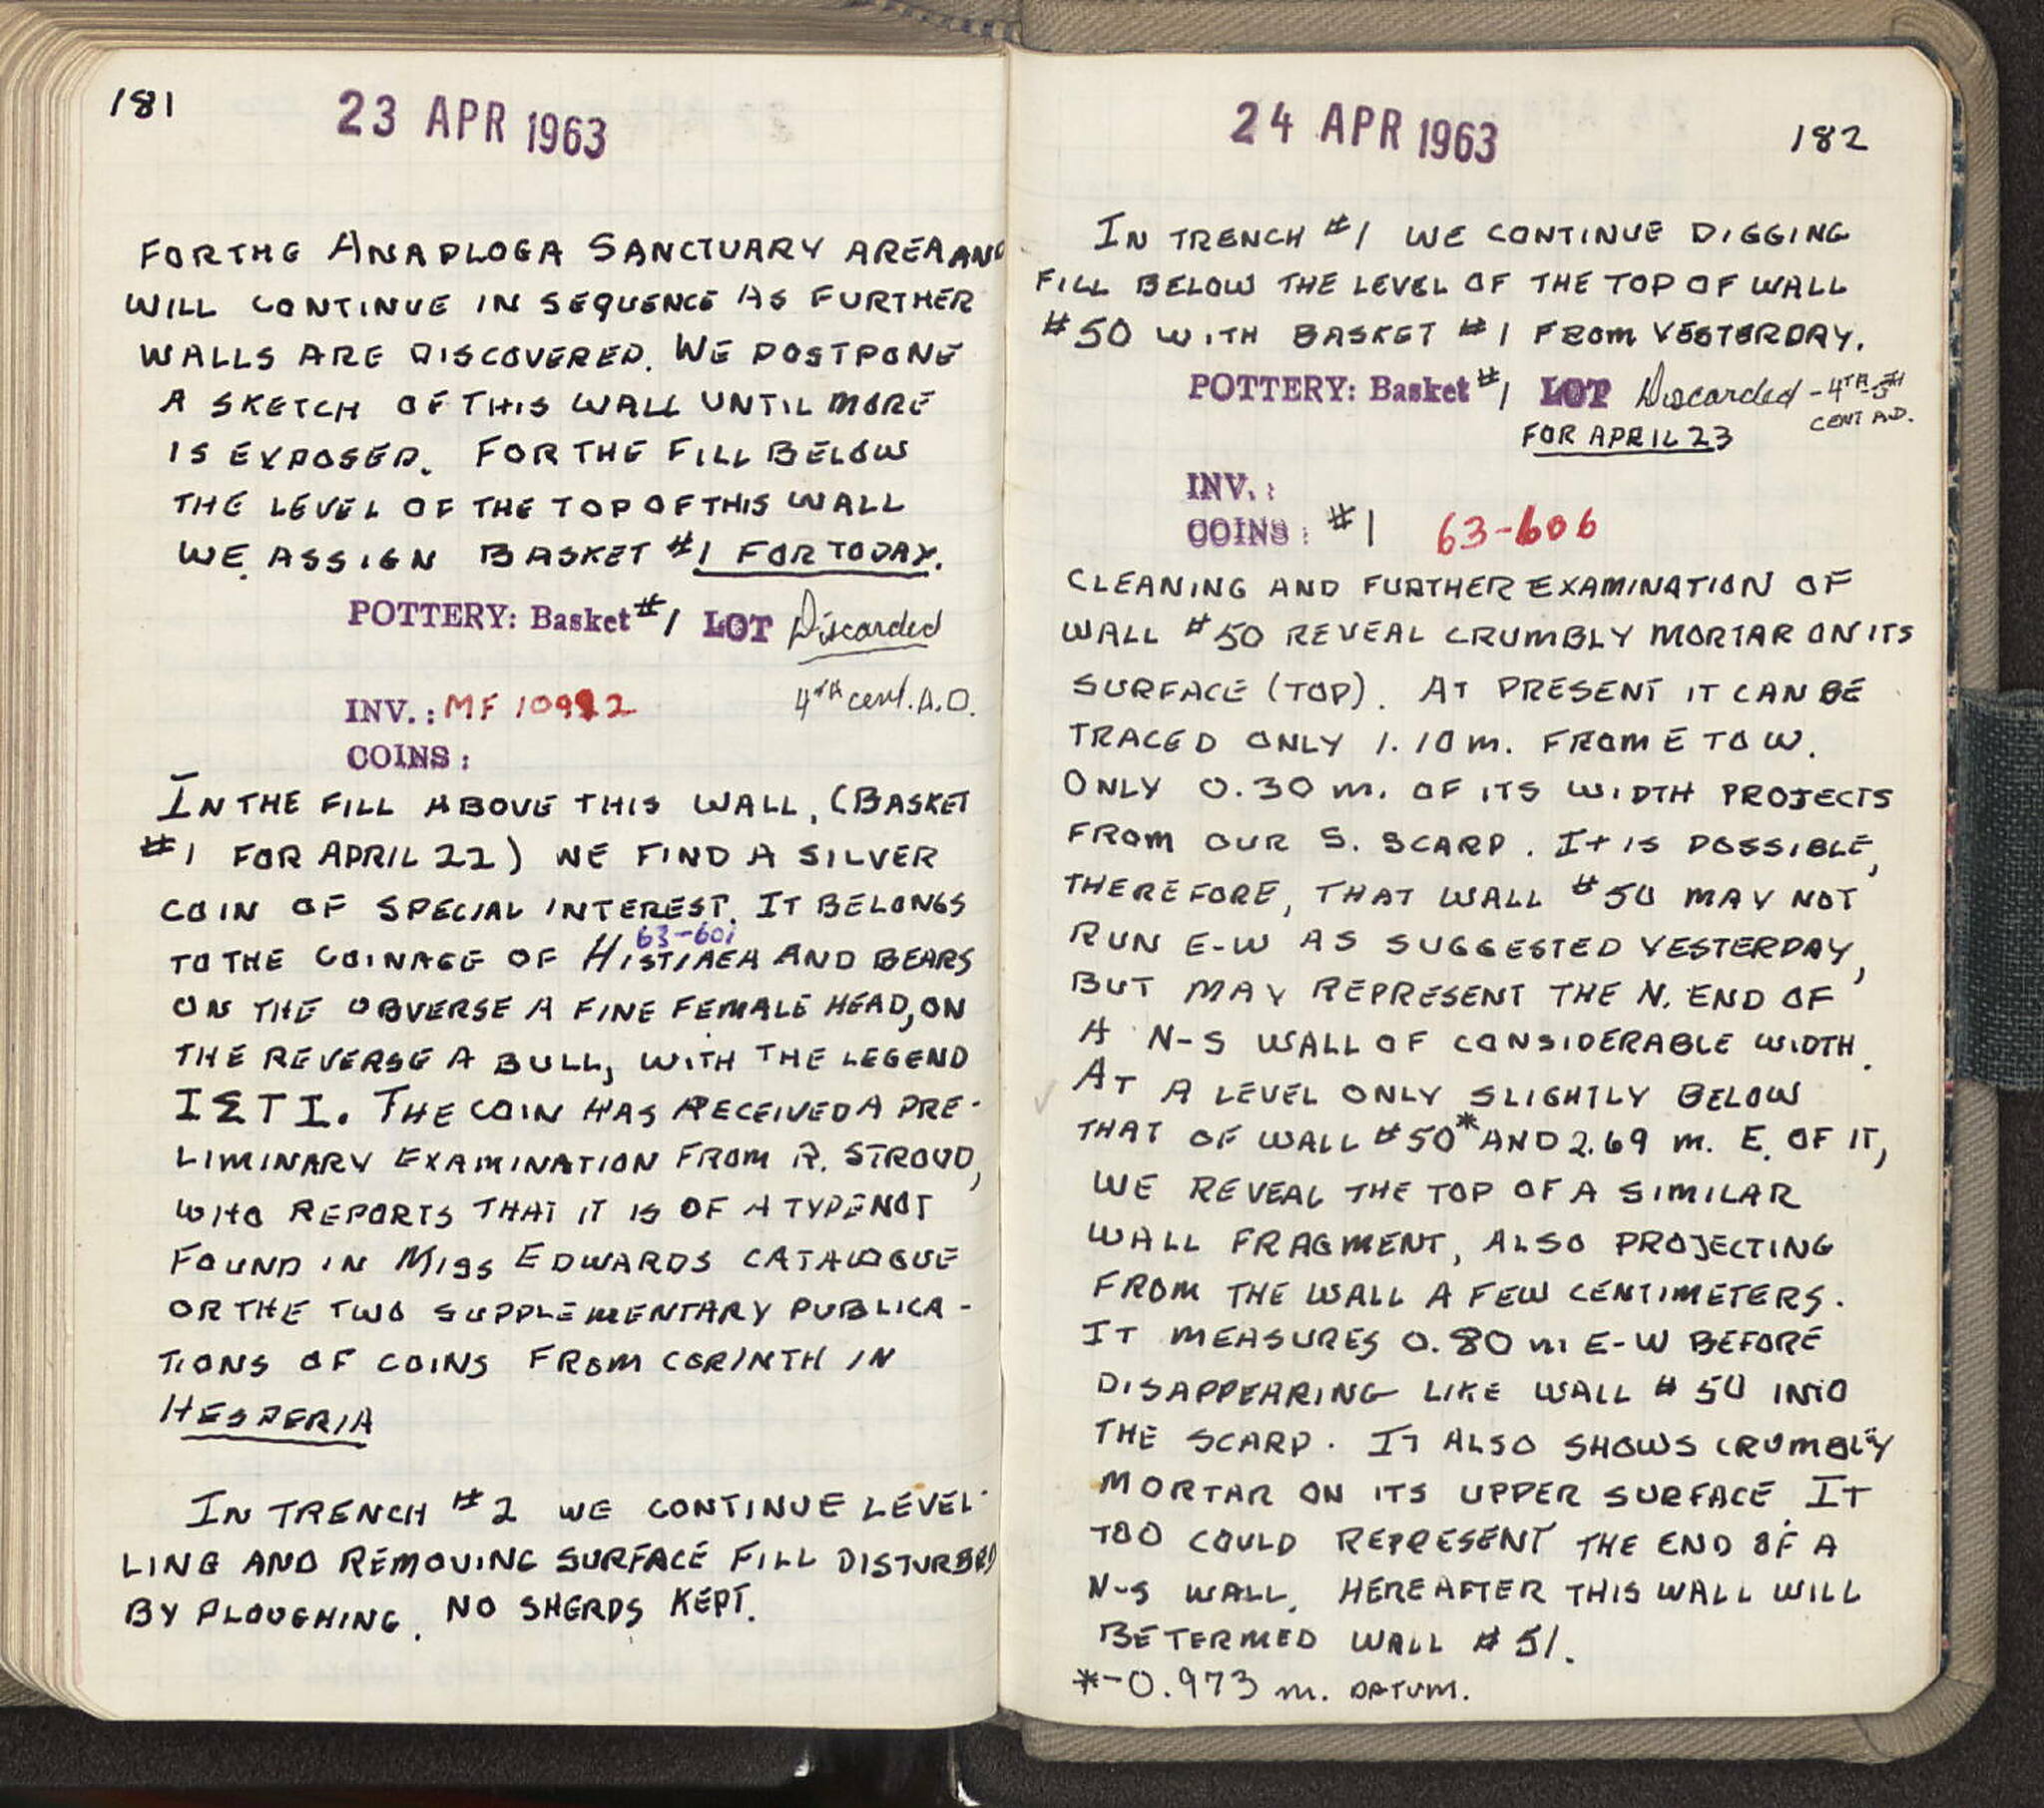 181
23 APR 1963
FOR THE ANAPLOGA SANCTUARY AREA AND
WILL CONTINUE IN SEQUENCE AS FURTHER
WALLS ARE DISCOVERED. WE POSTPONE
A SKETCH OF THIS WALL UNTIL MORE
IS EXPOSED. FOR THE FILL BELOW
THE LEVEL OF THE TOP OF THIS WALL
WE ASSIGN BASKET #1 FOR TODAY.
POTTERY: Basket #1 LOT Discarded
4TH cent. A.D.
INV.: MF 10992
COINS:
IN THE FILL ABOVE THIS WALL, (BASKET
#1 FOR APRIL 22) WE FIND A SILVER
COIN OF SPECIAL INTEREST. IT BELONGS
63-601
TO THE COINAGE OF HISTIAEA AND BEARS
ON THE OBVERSE A FINE FEMALE HEAD, ON
THE REVERSE A BULL, WITH THE LEGEND
ΙΣΤΙ. THE COIN HAS RECEIVED A PRE-
LIMINARY EXAMINATION FROM R. STROUD,
WHO REPORTS THAT IT IS OF A TYPE NOT
FOUND IN MISS EDWARDS CATALOGUE
OR THE TWO SUPPLEMENTARY PUBLICA-
TIONS OF COINS FROM CORINTH IN
HESPERIA
IN TRENCH #2 WE CONTINUE LEVEL-
LING AND REMOVING SURFACE FILL DISTURBED
BY PLOUGHING. NO SHERDS KEPT.
24 APR 1963
182
IN TRENCH #1 WE CONTINUE DIGGING
FILL BELOW THE LEVEL OF THE TOP OF WALL
#50 WITH BASKET #1 FROM YESTERDAY.
POTTERY: Basket #1 LOT Discarded - 4TH-5TH
CENT A.D.
FOR APRIL 23
INV.:
COINS: #1 63-606
CLEANING AND FURTHER EXAMINATION OF
WALL #50 REVEAL CRUMBLY MORTAR ON ITS
SURFACE (TOP). AT PRESENT IT CAN BE
TRACED ONLY 1.10 M. FROM E TO W.
ONLY 0.30 M. OF ITS WIDTH PROJECTS
FROM OUR S. SCARP. IT IS POSSIBLE,
THEREFORE, THAT WALL #50 MAY NOT
RUN E-W AS SUGGESTED YESTERDAY,
BUT MAY REPRESENT THE N. END OF
A N-S WALL OF CONSIDERABLE WIDTH.
AT A LEVEL ONLY SLIGHTLY BELOW
THAT OF WALL #50* AND 2.69 M. E. OF IT,
WE REVEAL THE TOP OF A SIMILAR
WALL FRAGMENT, ALSO PROJECTING
FROM THE WALL A FEW CENTIMETERS.
IT MEASURES 0.80 m E-W BEFORE
DISAPPEARING LIKE WALL #50 INTO
THE SCARP. IT ALSO SHOWS CRUMBLY
MORTAR ON ITS UPPER SURFACE. IT
TOO COULD REPRESENT THE END OF A
N-S WALL. HEREAFTER THIS WALL WILL
BE TERMED WALL #51.
*-0.973 m. DATUM.